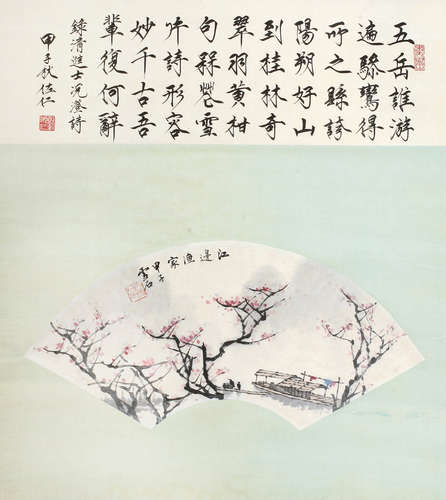 五岳誰游
遍驂鸞得
所之縣誇
陽朔好山
到桂林奇
翠羽黄柑
句槑花雪
片詩形容
妙千古吾
輩復何辭
錄清進士况澄詩
甲子秋佐仁
江邊漁家
甲子